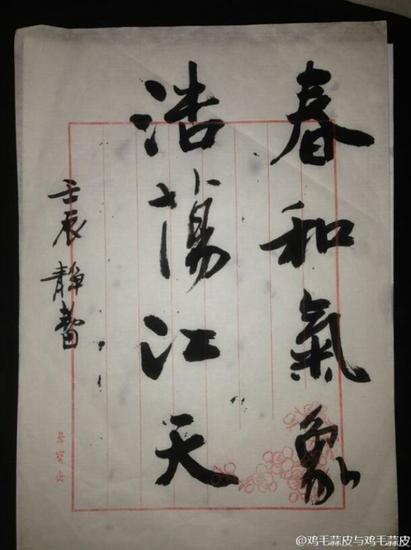 春和氣象
浩蕩江天
壬辰 靜
榮宝斋
@鸡毛蒜皮与鸡毛蒜皮